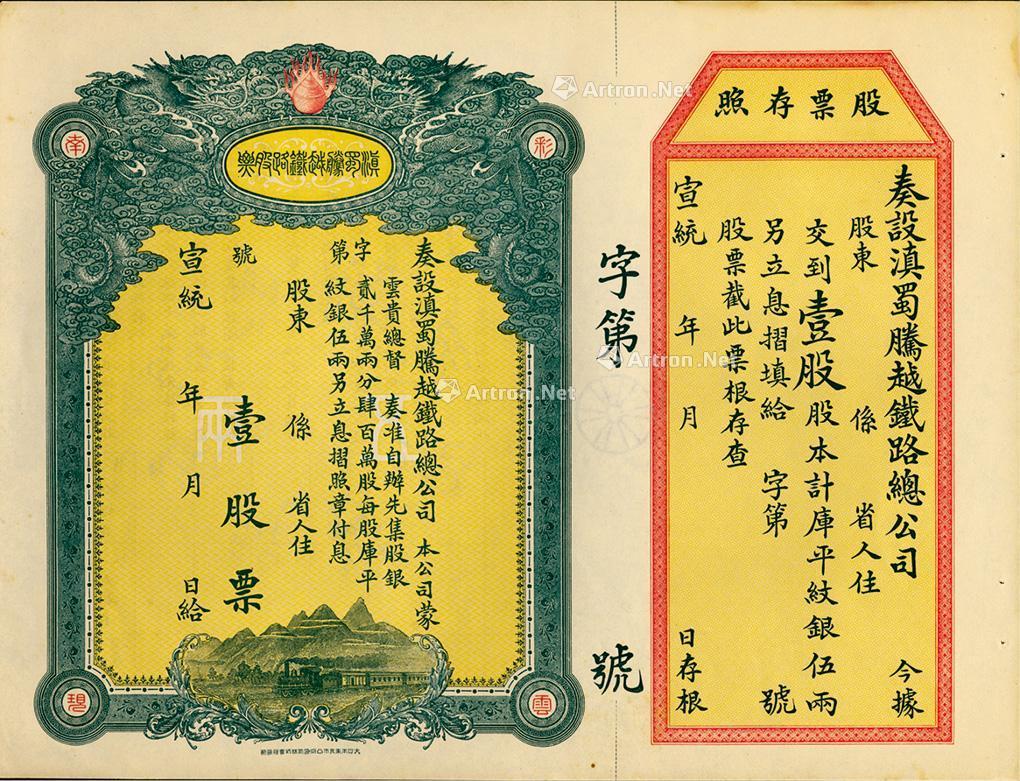 股票存照
奏設滇蜀騰越鐵路總公司 今據
股東 係 省人住
交到壹股股本計庫平紋銀伍兩
另立息摺填給 字第 號
股票截此票根存查
宣統 年 月 日存根
字第 號
滇蜀騰越鐵路股票
彩
雲
南
現
奏設滇蜀騰越鐵路總公司 本公司蒙
雲貴總督 奏准自辦先集股銀
貳千萬兩分肆百萬股每股庫平
紋銀伍兩另立息摺照章付息
字第 號
股東 係 省人住
壹股票
宣統 年 月 日給
伍兩
Artron.Net
Artron.Net
Artron.Net
Artron.Net
Artron.Net